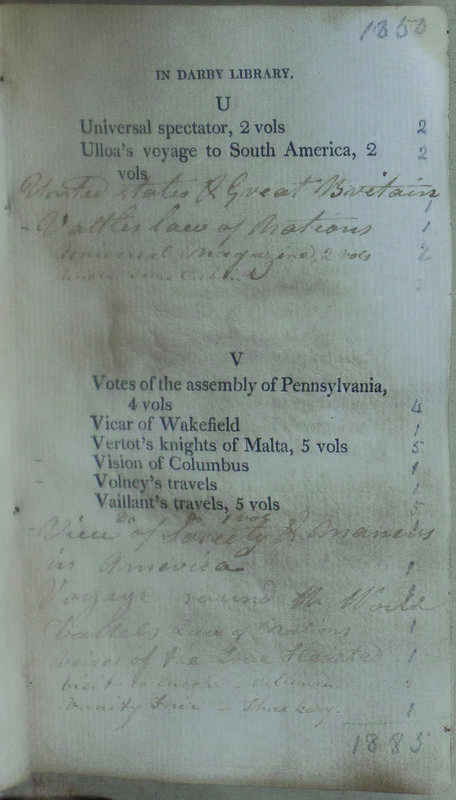 1850
IN DARBY LIBRARY.
U
Universal spectator, 2 vols 2
Ulloa's voyage to South America, 2 2
vols
United states & Great Britain 1
Vattles law of Nations 1
Universal Magazine, 2 vols 2
2
V
Votes of the assembly of Pennsylvania,
4 vols 4
Vicar of Wakefield 1
Vertot's knights of Malta, 5 vols 5
Vision of Columbus 1
Volney's travels 1
Vaillant's travels, 5 vols 5
Do Do 1 vol
View of Society & Manners
in America 1
Voyage round the World 1
Vattels Law of Nations 1
Voices of the True Hearted 1
Visit to Europe
Vanity Fair - Thackery. 1
1885